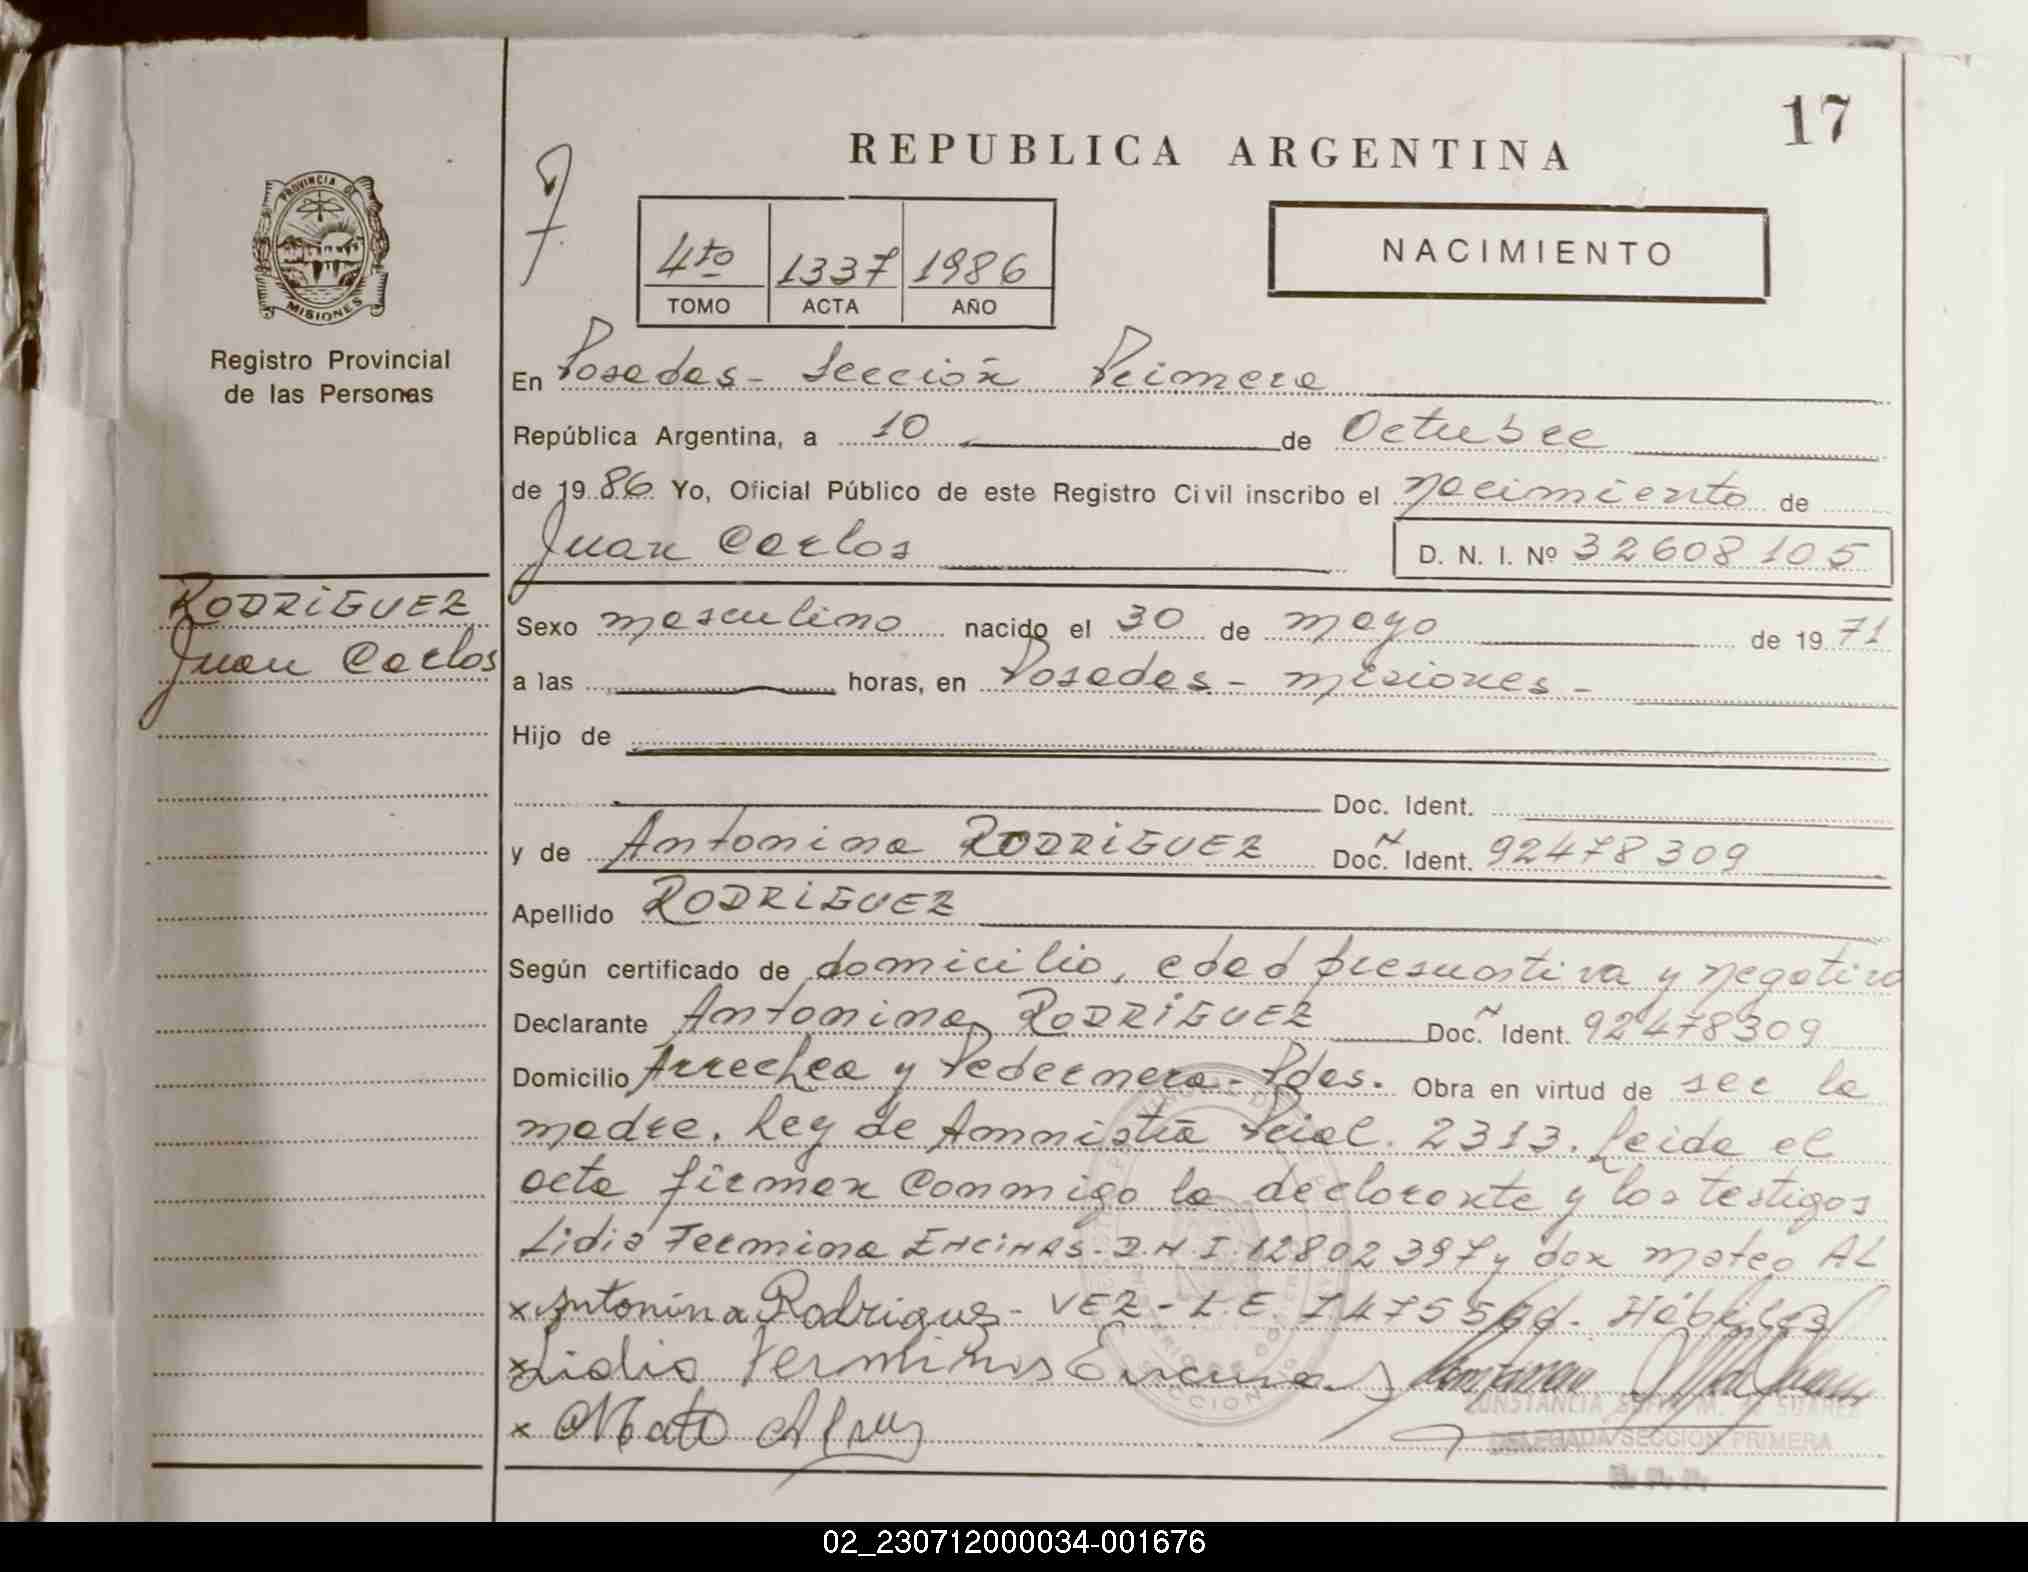 17
REPUBLICA ARGENTINA
NACIMIENTO
4to 1337 1986
TOMO ACTA AÑO
PROVINCIA DE
MISIONES
Registro Provincial
de las Personas
RODRIGUEZ
Juan Carlos
En Posadas - Sección Primera
República Argentina, a 10 de Octubre
de 1986 Yo, Oficial Público de este Registro Civil inscribo el nacimiento de
Juan Carlos D. N. I. Nº 32608105
Sexo masculino nacido el 30 de mayo de 1971
a las horas, en Posadas - misiones -
Hijo de
Doc. Ident.
y de Antonina RODRIGUEZ Doc. Ident. 92478309
Apellido RODRIGUEZ
Según certificado de domicilio, edad presuntiva y negativo
Declarante Antonina RODRIGUEZ Doc. Ident. 92478309
Domicilio Arrechea y Pedernera - Pdas. Obra en virtud de ser la
madre. Ley de Amnistia Pcial. 2313. Leida el
acta firman conmigo la declarante y los testigos
Lidia Fermina ENCINAS - D.N.I. 12802397 y don mateo AL
x Antonina Rodriguez - VEZ - L.E. Hábiles
x Lidia Encina
x
CONSTANCIA M. DE SUAREZ
DELEGADA SECCION PRIMERA
02_230712000034-001676